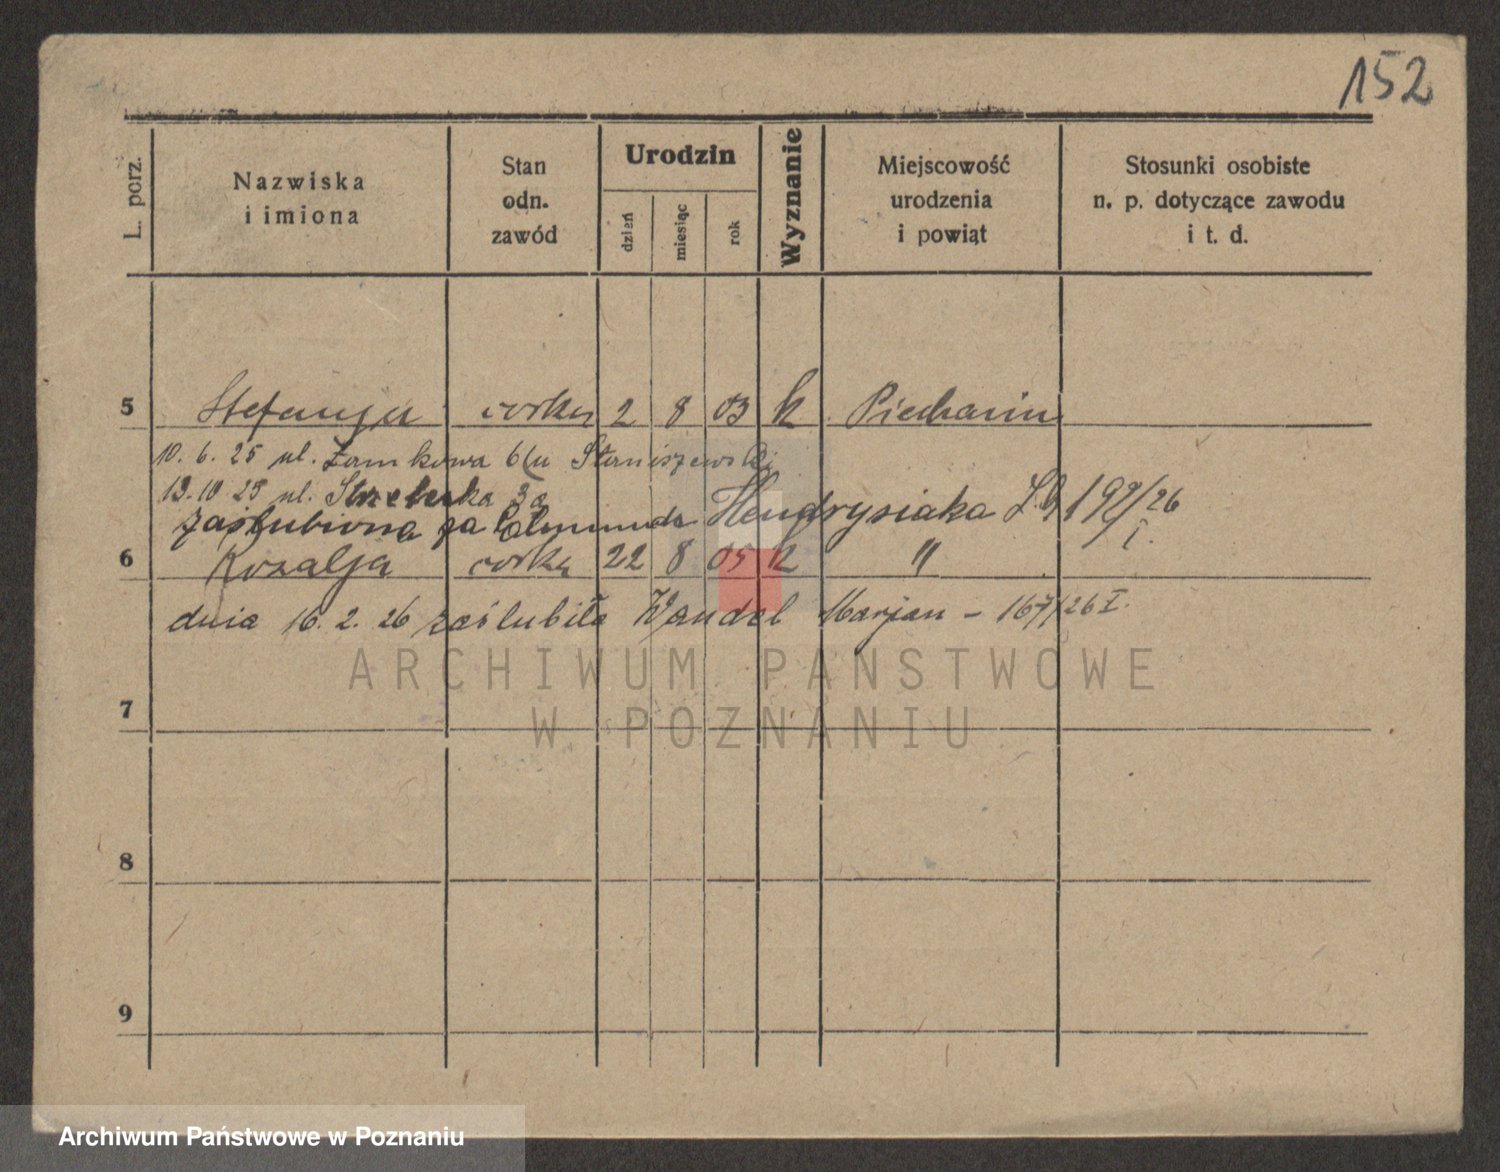 152
L. porz.
Nazwiska
i imiona
Stan
odn.
zawód
Urodzin
dzień
miesiąc
rok
Wyznanie
Miejscowość
urodzenia
i powiąt
Stosunki osobiste
n. p. dotyczące zawodu
i t. d.
5 Stefanja córka 2 8 03 k Piechanin
10. 6. 25 ul. Zamkowa 6 Staniszewski
13. 10 25 ul. Strzelecka 3a
zaślubiona za Edmunda Hendrysiaka 199/26
I.
6 Rozalja córka 22 8 05 k "
dnia 16. 2. 26 zaślubiła Wandel Marjan - 167/26 I.
7
8
9
ARCHIWUM PAŃSTWOWE
W POZNANIU
Archiwum Państwowe w Poznaniu